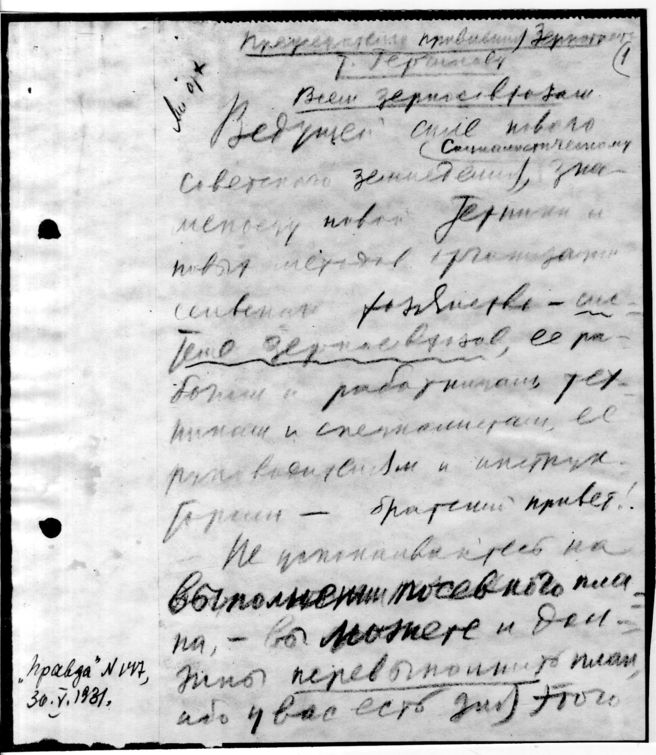 Председателю правления Зернотреста
т. Герчикову
1
Всем зерносовхозам
Ведущей силе нового
(социалистического
советского земледелия), зна-
меносцу новой техники и
новых методов организации
сельского хозяйства – сис-
теме зерносовхозов, ее ра-
бочим и работницам, тех-
никам и специалистам, ее
руководителям и инструк-
торам — братский привет!
Не успокаивайтесь на
выполнении посевного пла-
на, – вы можете и дол-
жны перевыполнить план,
ибо у вас есть для этого
„Правда" N 147,
30.V.1931.